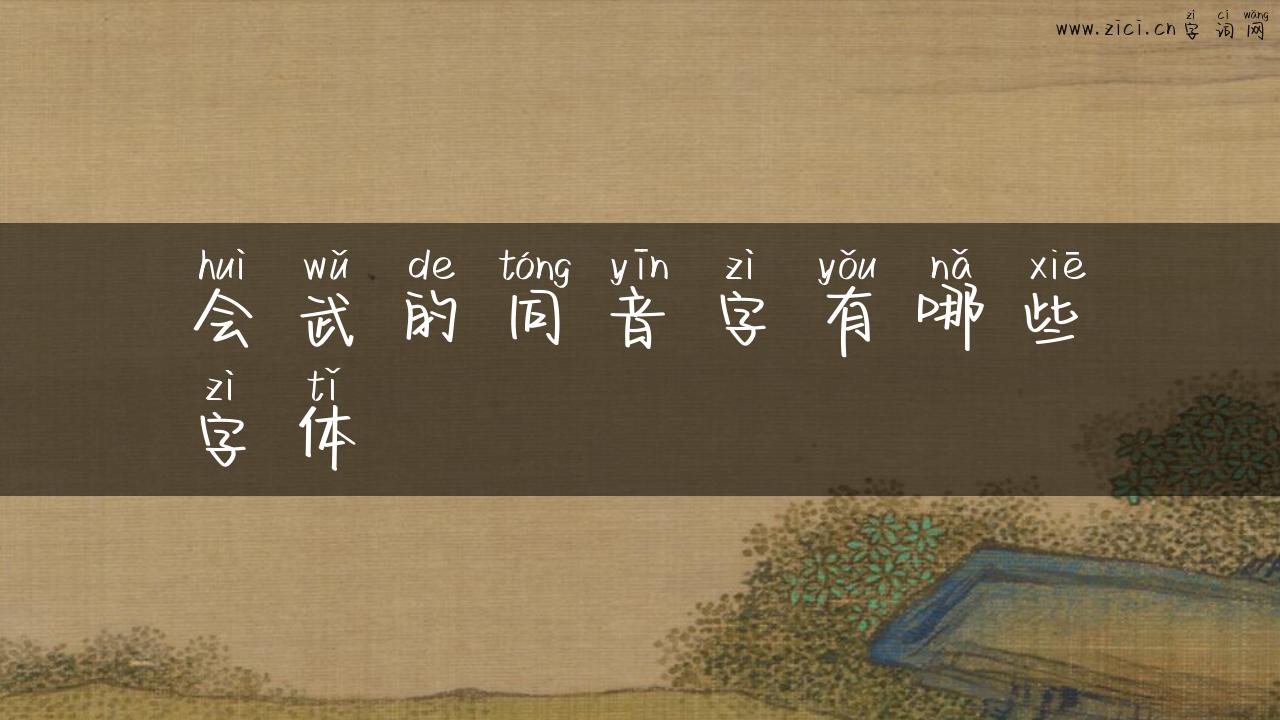 zì cí wǎng
www.zici.cn 字词网
huì wǔ de tóng yīn zì yǒu nǎ xiē
会武的同音字有哪些
zì tǐ
字体